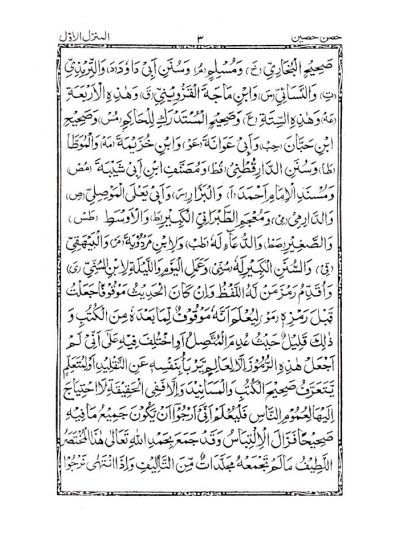 المنزل الاوّل ٣ حصن حصين
صَحِيْحُ الْبُخَارِيِّ (خ) وَمُسْلِمٍ (مر) وَسُنَنِ اَبِيْ دَاوٗدَ (د) وَالتِّرْمِذِيِّ
(ت) وَالنَّسَائِيِّ (س) وَابْنِ مَاجَةَ الْقَزْوِيْنِيِّ (ق) وَهٰذِهِ الْاَرْبَعَةِ
(عه) وَهٰذِهِ السِّتَّةِ (ع) وَصَحِيْحِ الْمُسْتَدْرَكِ لِلْحَاكِمِ (مس) وَصَحِيْحِ
ابْنِ حِبَّانَ (حب) وَاَبِيْ عَوَانَةَ (عو) وَابْنِ خُزَيْمَةَ (مه) وَالْمُوَطَّا
(طا) وَسُنَنِ الدَّارِقُطْنِيِّ (قط) وَمُصَنَّفِ ابْنِ اَبِيْ شَيْبَةَ (مص)
وَمُسْنَدِ الْاِمَامِ اَحْمَدَ (ا) وَالْبَزَّارِ (ر) وَاَبِيْ يَعْلَى الْمَوْصِلِيِّ (ص)
وَالدَّارِمِيِّ (مي) وَمُعْجَمِ الطَّبَرَانِيِّ الْكَبِيْرِ (ط) وَالْاَوْسَطِ (طس)
وَالصَّغِيْرِ (صط) وَالدُّعَاءِ لَهٗ (طب) وَلِابْنِ مَرْدَوَيْهِ (مر) وَالْبَيْهَقِيِّ
(قي) وَالسُّنَنِ الْكَبِيْرِ لَهٗ (سني) وَعَمَلِ الْيَوْمِ وَاللَّيْلَةِ لِابْنِ السُّنِّيِّ (ي)
وَاُقَدِّمُ رَمْزَ مَنْ لَهُ اللَّفْظُ وَاِنْ كَانَ الْحَدِيْثُ مَوْقُوْفًا جَعَلْتُ
قَبْلَ رَمْزِهٖ (مو) لِيُعْلَمَ اَنَّهٗ مَوْقُوْفٌ لِمَا بَعْدَهٗ مِنَ الْكُتُبِ وَ
ذٰلِكَ قَلِيْلٌ حَيْثُ عُدِمَ الْمُتَّصِلُ اَوِ اخْتُلِفَ فِيْهِ عَلٰى اَنِّيْ لَمْ
اَجْعَلْ هٰذِهِ الرُّمُوْزَ اِلَّا لِعَالِمٍ يَّرْبَاُ بِنَفْسِهٖ عَنِ التَّقْلِيْدِ اَوْ لِمُتَعَلِّمٍ
يَتَعَرَّفُ صَحِيْحَ الْكُتُبِ وَالْمَسَانِيْدِ وَاِلَّا فَفِي الْحَقِيْقَةِ لَا احْتِيَاجَ
اِلَيْهَا لِعُمُوْمِ النَّاسِ فَلْيُعْلَمْ اَنِّيْ اَرْجُوْا اَنْ يَّكُوْنَ جَمِيْعُ مَا فِيْهِ
صَحِيْحًا فَزَالَ الْاِلْتِبَاسُ وَقَدْ جَمَعَ بِحَمْدِ اللّٰهِ تَعَالٰى هٰذَا الْمُخْتَصَرُ
اللَّطِيْفُ مَا لَمْ تَجْمَعْهُ مُجَلَّدَاتٌ مِّنَ التَّاٰلِيْفِ وَاِذَا انْتَهٰى نَرْجُوْا